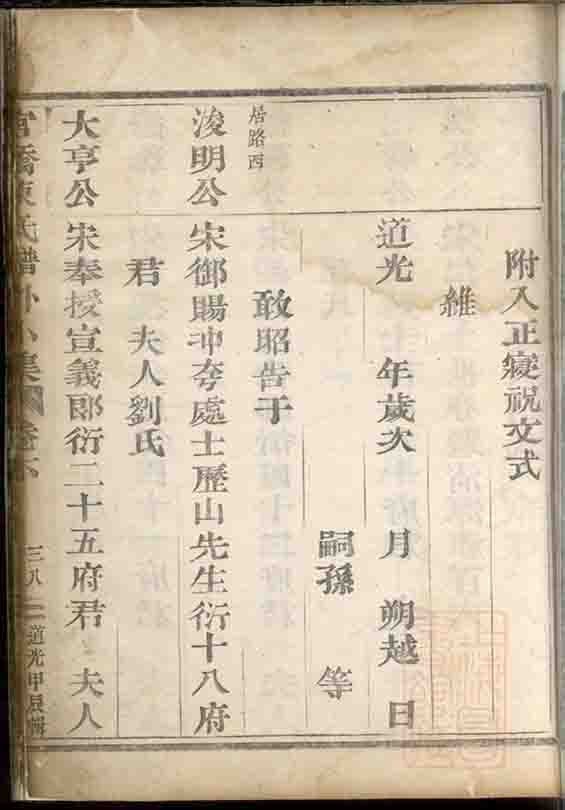 附入正變祝文式
維
道光　年歲次　月　朔越　日
嗣孫　等
敢昭告于
浚明公　宋御賜冲夸處士歷山先生衍十八府
居路西
君　夫人劉氏
大亨公　宋奉授宣義郎衍二十五府君　夫人
官橋東氏譜外小集　卷下　三八　道光甲辰輯